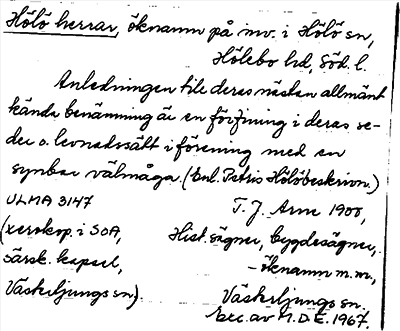 Hölö herrar, öknamn på inv. i Hölö sn,
Hölebo hd, Söd. l.
Anledningen till deras nästan allmänt
kända benämning är en förfining i deras se-
der o. levnadssätt i förening med en
synbar välmåga. (Enl. Petris Hölöbeskrivn.)
ULMA 3147 T. J. Arne 1900,
(xerokop. i SOA, Hist. sägner, bygdesägner,
särsk. kapsel, – öknamn m.m.,
Västerljungs sn). Västerljungs sn.
Exc. av M.D.E. 1967.